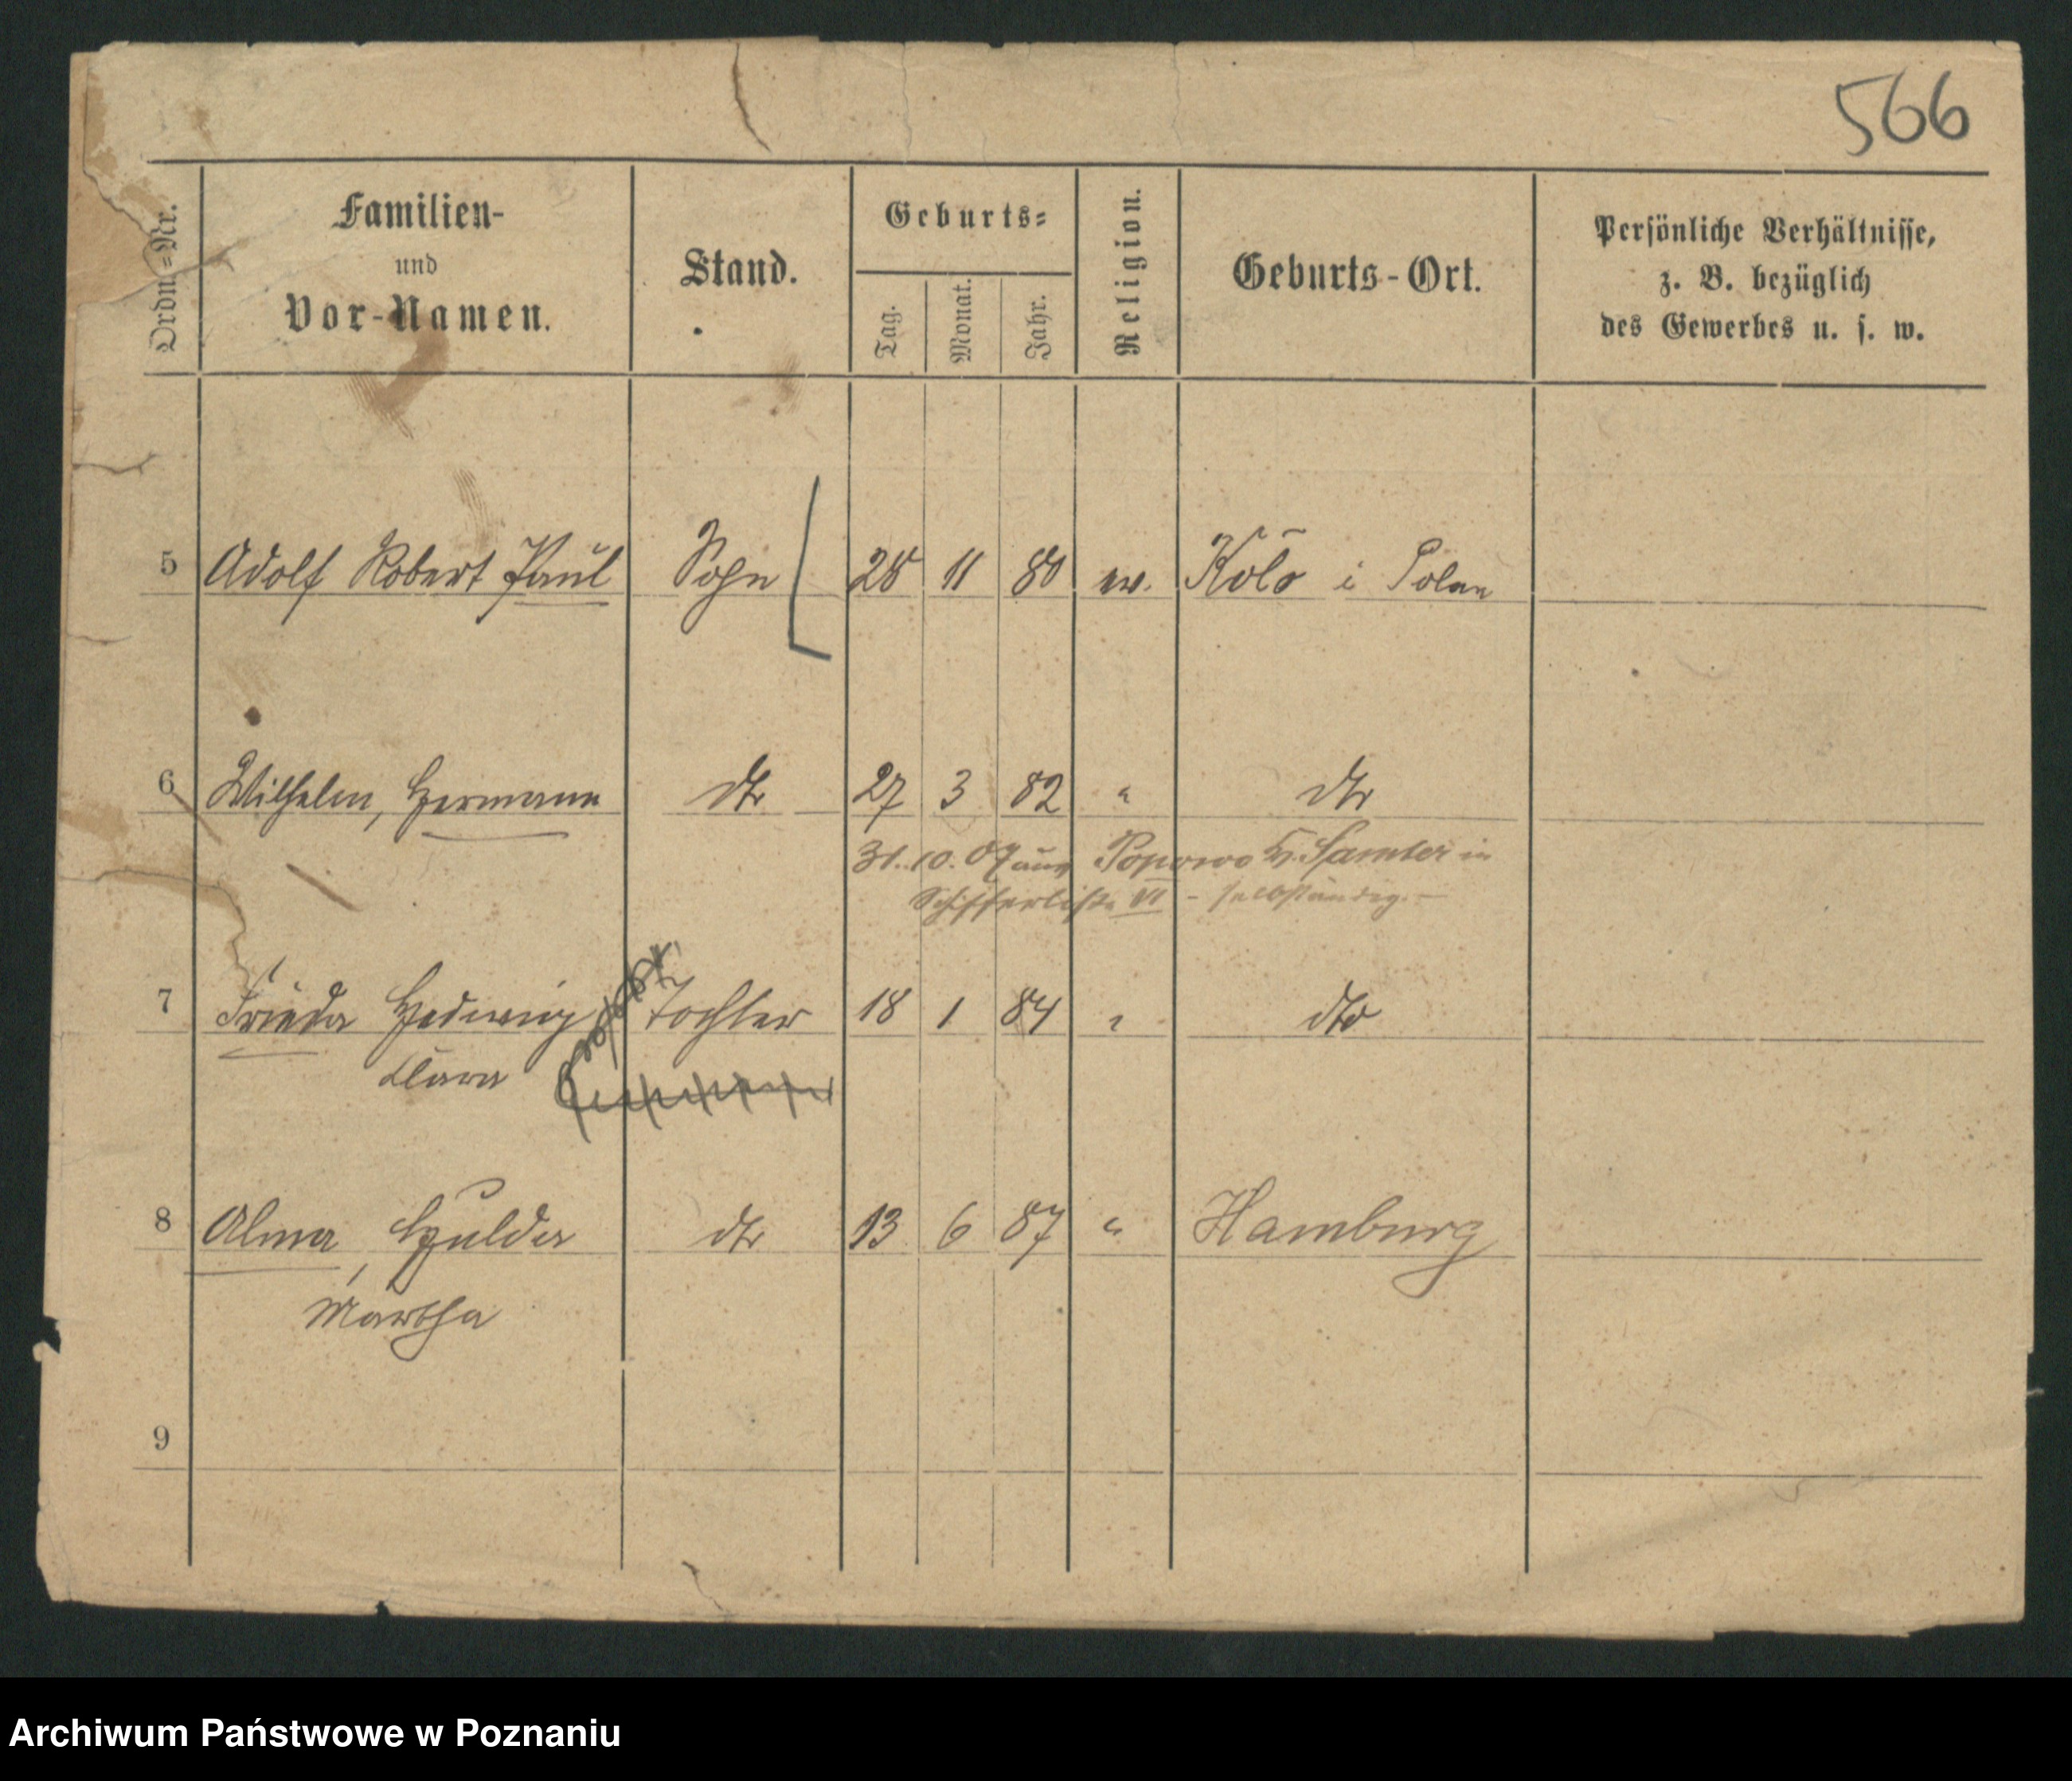 566
Ordn.=Nr.
Familien-
und
Vor-Namen.
Stand.
Geburts=
Tag.
Monat.
Jahr.
Religion.
Geburts-Ort.
Persönliche Verhältnisse,
z. B. bezüglich
des Gewerbes u. s. w.
5 Adolf Robert Paul Sohn 28 11 80 ev. Kolo i Polen
6 Wilhelm, Hermann dto 27 3 82 " dto
31. 10. 07 aus Popowo Kr. Samter in
Schifferliste VI - selbständig. -
7 Frieda Hedwig Tochter 18 1 84 " dto
Clara
8 Alma, Hulda dto 13 6 87 " Hamburg
Martha
9
Archiwum Państwowe w Poznaniu